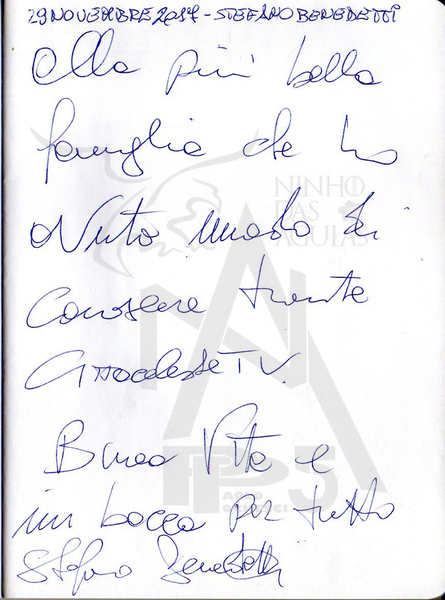 29 NOVEMBRE 2017 - STEFANO BENEDETTI
Alla più bella
famiglia che ho
avuto modo di
conoscere tramite
Buona Vita e
in bocca per tutto
Stefano Benedetti
NINHO
DAS
ÁGUIAS